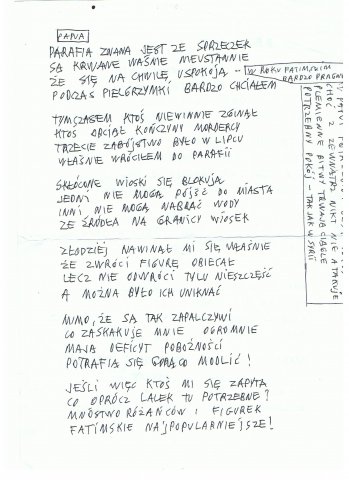 PAPUA
PARAFIA ZNANA JEST ZE SPRZECZEK
SĄ KRWAWE WAŚNIE NIEUSTANNIE
ŻE SIĘ NA CHWILĘ USPOKOJĄ –
W ROKU FATIMSKIM
BARDZO PRAGNĘ
PODCZAS PIELGRZYMKI BARDZO CHCIAŁEM
TYMCZASEM KTOŚ NIEWINNIE ZGINĄŁ
KTOŚ OBCIĄŁ KOŃCZYNY MORDERCY
TRZECIE ZABÓJSTWO BYŁO W LIPCU
WŁAŚNIE WRÓCIŁEM DO PARAFII
SKŁÓCONE WIOSKI SIĘ BLOKUJĄ
JEDNI NIE MOGĄ PÓJŚĆ DO MIASTA
INNI NIE MOGĄ NABRAĆ WODY
ZE ŹRÓDŁA NA GRANICY WIOSEK
ZŁODZIEJ NAWINĄŁ MI SIĘ WŁAŚNIE
ŻE ZWRÓCI FIGURĘ OBIECAŁ
LECZ NIE ODWRÓCI TYLU NIESZCZĘŚĆ
A MOŻNA BYŁO ICH UNIKNĄĆ
MIMO, ŻE SĄ TAK ZAPALCZYWI
CO ZASKAKUJE MNIE OGROMNIE
MAJĄ DEFICYT POBOŻNOŚCI
POTRAFIĄ SIĘ GORĄCO MODLIĆ!
JEŚLI WIĘC KTOŚ MI SIĘ ZAPYTA
CO OPRÓCZ LALEK TU POTRZEBNE?
MNÓSTWO RÓŻAŃCÓW I FIGUREK
FATIMSKIE NAJPOPULARNIEJSZE!
CHOĆ Z ZEWNĄTRZ NIKT NIE
PLEMIENNE BITWY TRWAJĄ CIĄGLE
POTRZEBNY POKÓJ – TAK JAK W SYRII